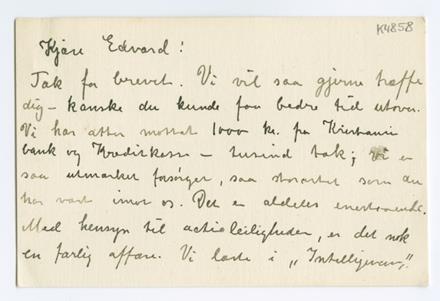 K4858
Kjære Edvard!
Tak for brevet. Vi vil saa gjerne træffe
dig – kanske du kunde faa bedre tid utover.
Vi har atter mottat 1000 kr. fra Kristiania
bank og Kreditkasse – tusind tak; Vi er
saa utmærket forsørget, saa storartet som du
har vært imot os. Det er aldeles enestaaende.
Med hensyn til actieleiligheden, er det nok
en farlig affære. Vi læste i „Intelligensen",